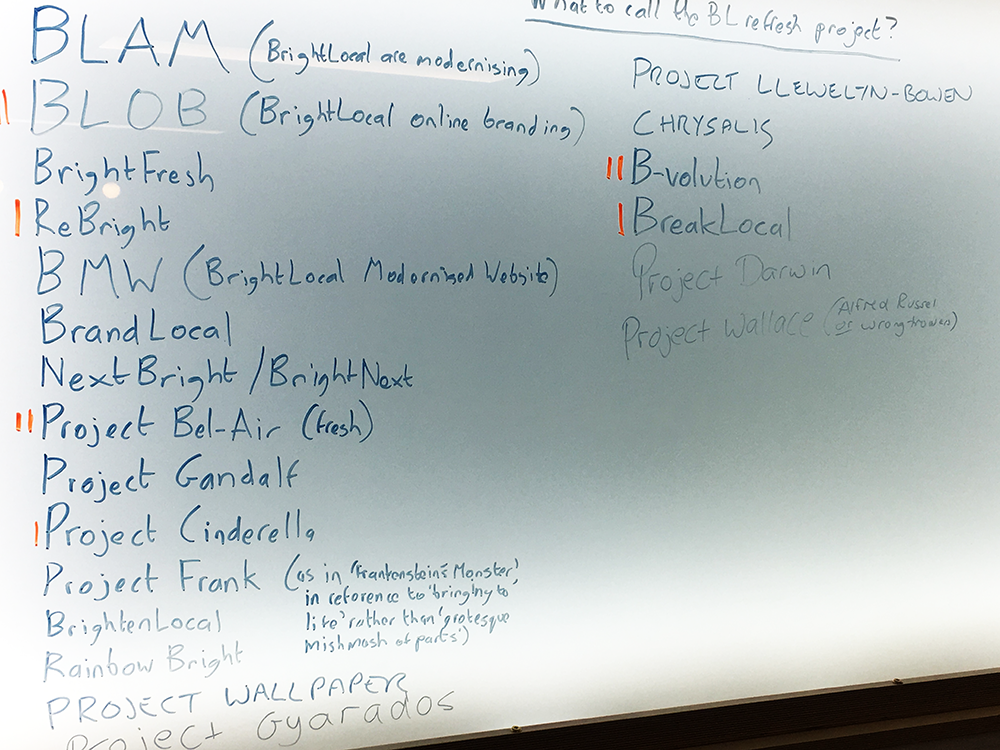 What to call the BL refresh project?
BLAM (BrightLocal are modernising)
BLOB (BrightLocal online branding)
BrightFresh
ReBright
BMW (BrightLocal Modernised Website)
BrandLocal
NextBright / BrightNext
Project Bel-Air (fresh)
Project Gandalf
Project Cinderella
Project Frank (as in 'Frankenstein's Monster',
in reference to 'bringing to
life' rather than 'grotesque
mishmash of parts')
BrightenLocal
Rainbow Bright
PROJECT WALLPAPER
Project Gyarados
PROJECT LLEWELYN-BOWEN
CHRYSALIS
B-volution
BreakLocal
Project Darwin
Project Wallace (Alfred Russel
or wrong trousers)